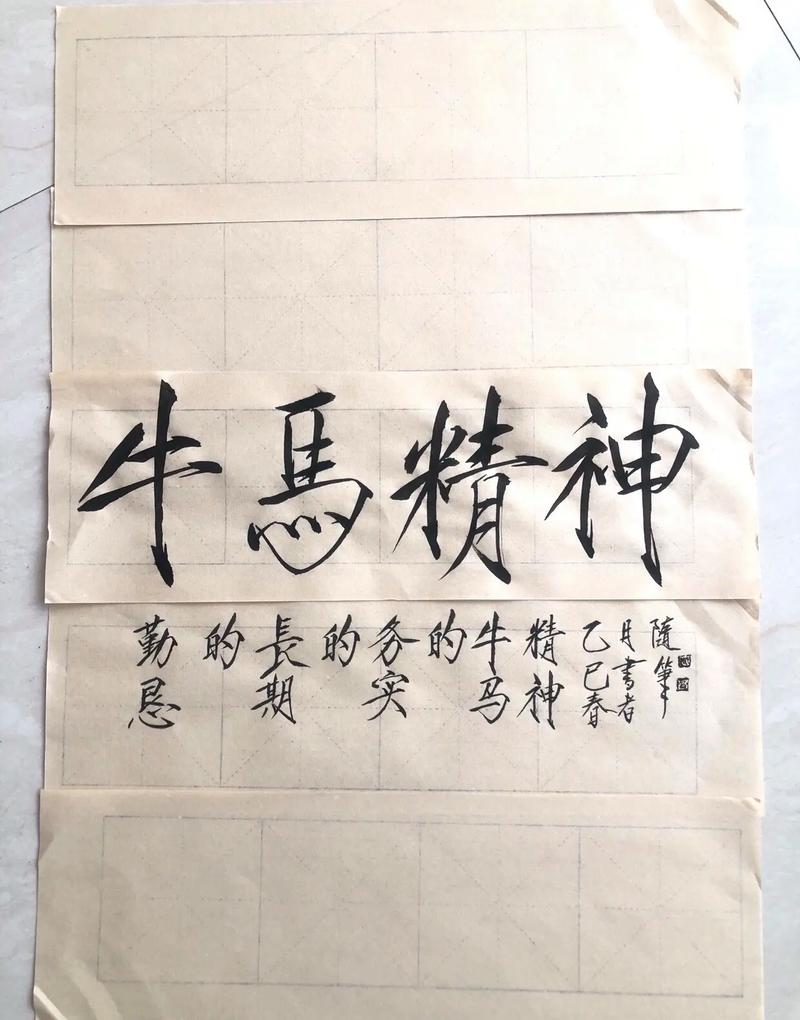 牛馬精神
勤恳
的
長期
的
务实
的
牛马
精神
乙巳春
月書者
隨筆